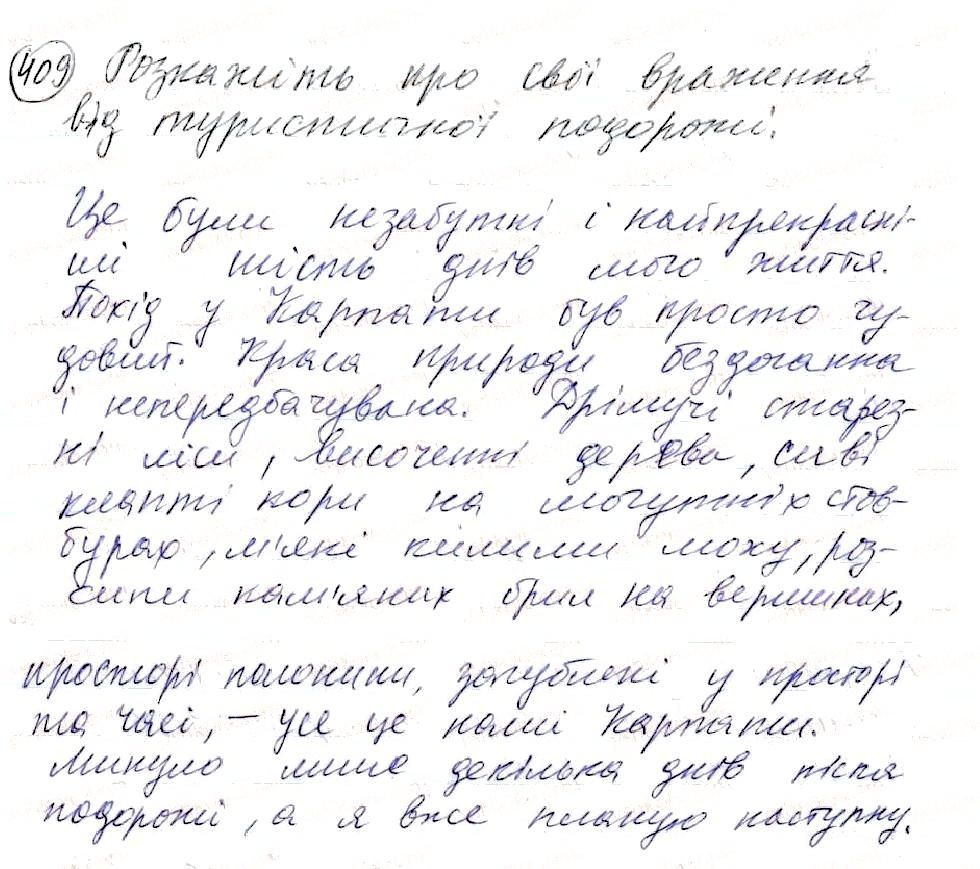 409 Розкажіть про свої враження
від туристичної подорожі.
Це були незабутні і найпрекрасні-
ші шість днів мого життя.
Похід у Карпати був просто чу-
довий. Краса природи бездоганна
і непередбачувана. Дрімучі старез-
ні ліси, височенні дерева, сиві
клапті кори на могутніх стов-
бурах, м'які килими моху, роз-
сипи кам'яних брил на вершинах,
просторі полонини, загублені у просторі
та часі, – усе це наші Карпати.
Минуло лише декілька днів після
подорожі, а я вже планую наступну.